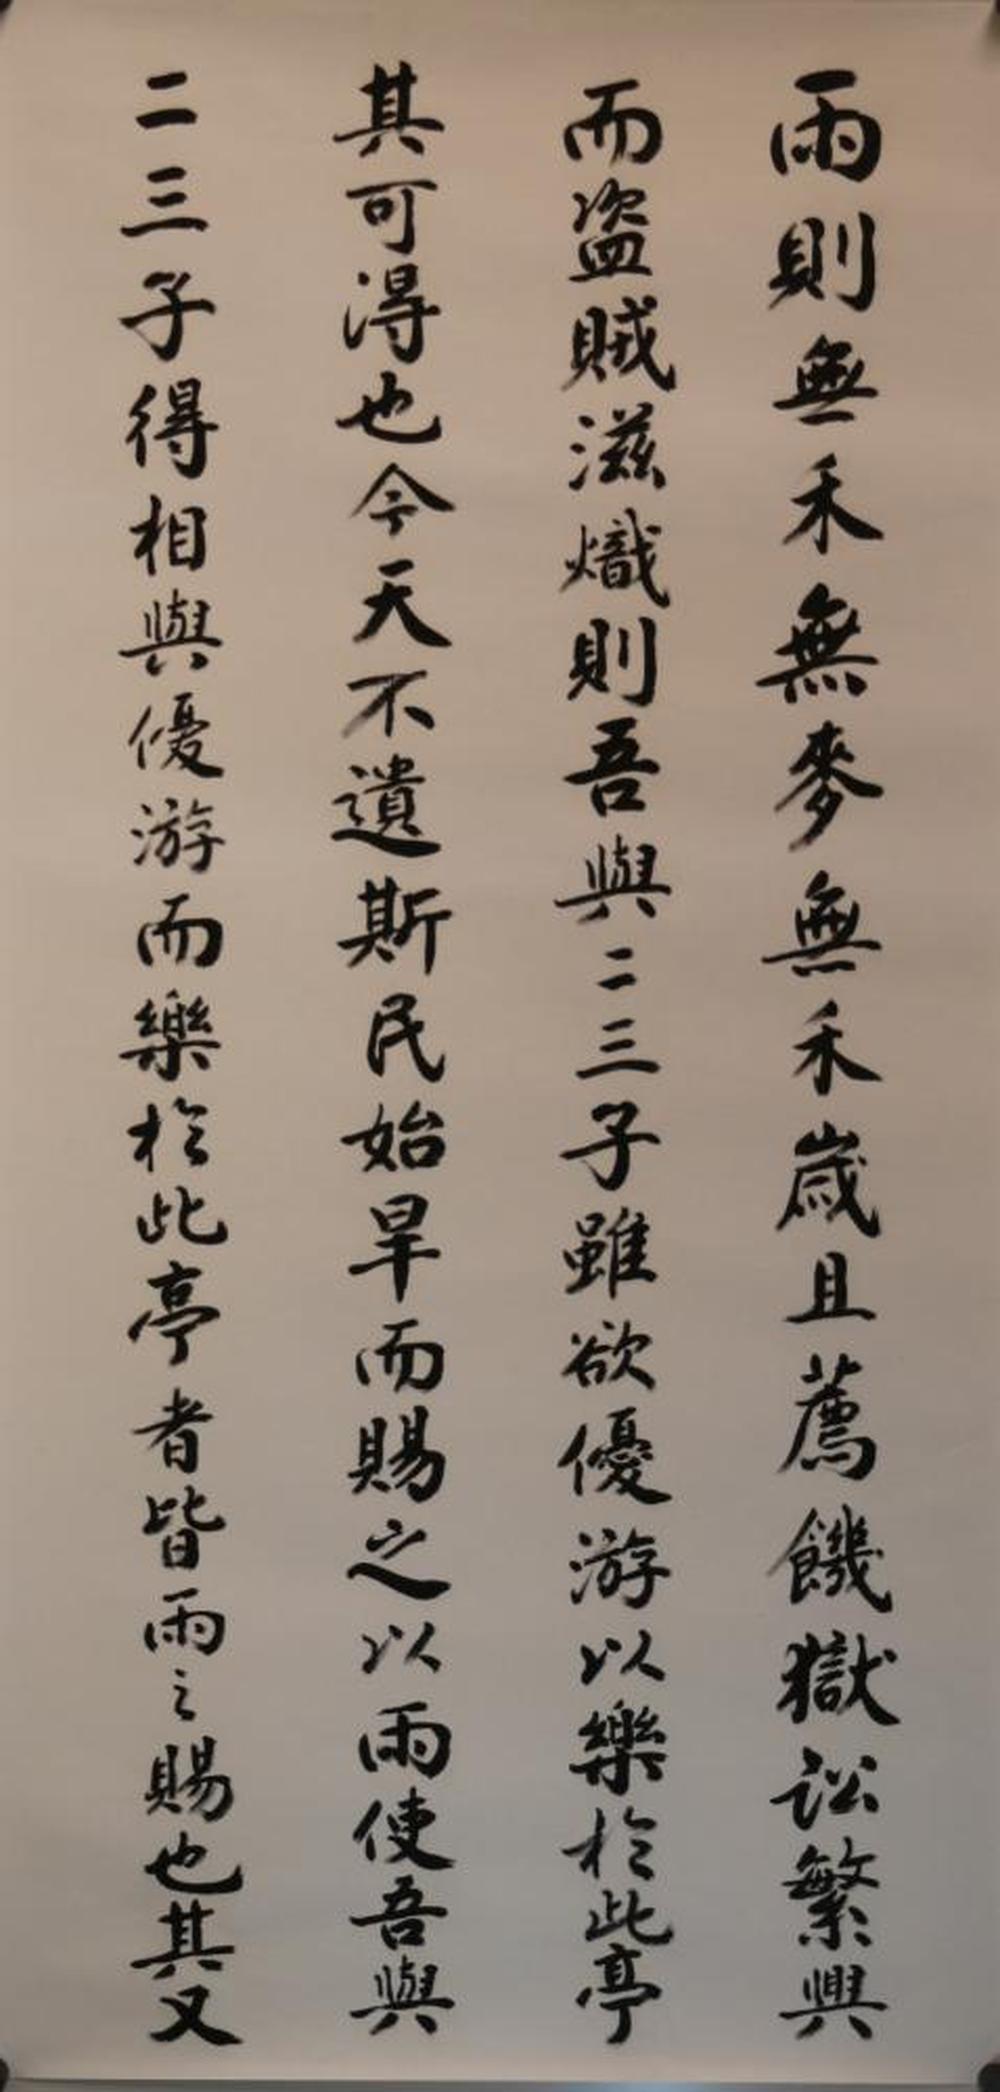 雨則無禾無麥無禾歲且薦饑獄訟繁興
而盜賊滋熾則吾與二三子雖欲優游以樂於此亭
其可得也今天不遺斯民始旱而賜之以雨使吾與
二三子得相與優游而樂於此亭者皆雨之賜也其又